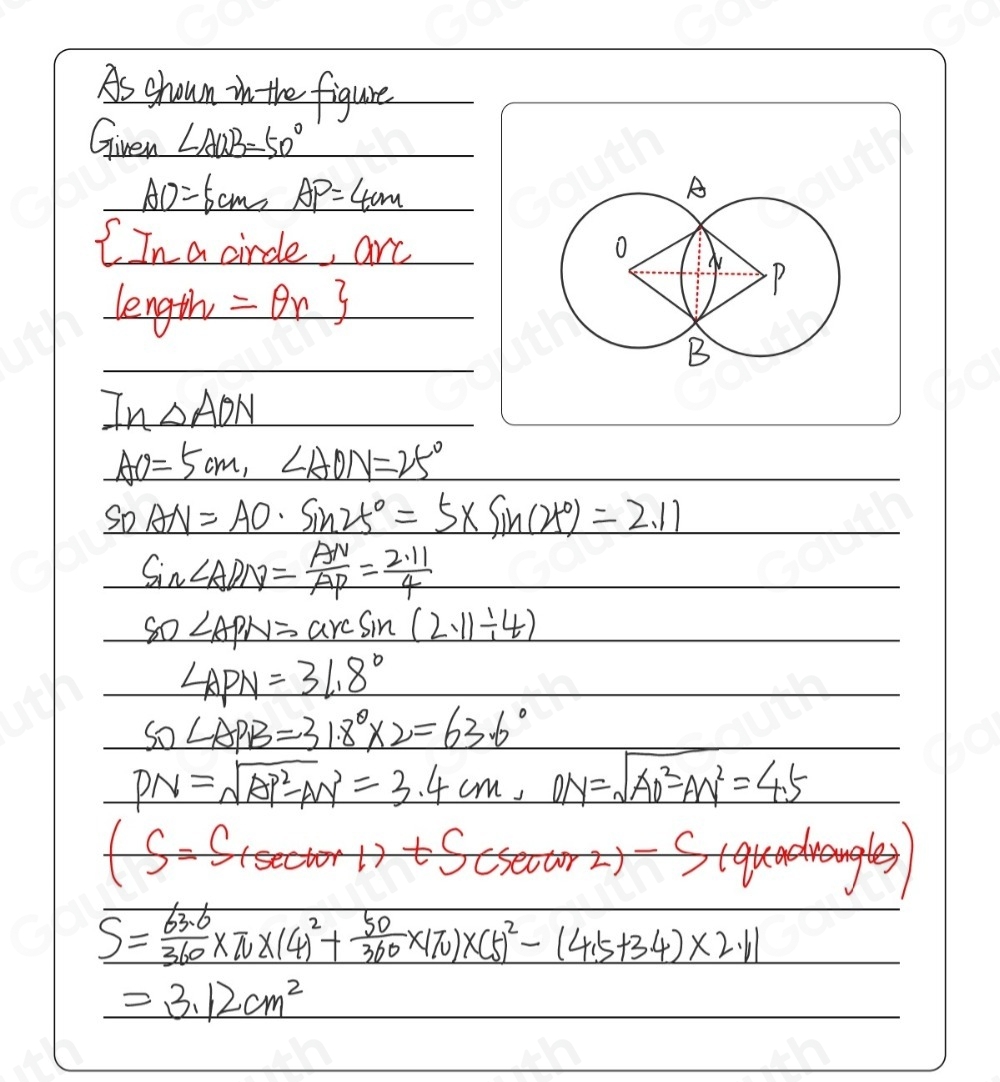 As shown in the figure
Given ∠AOB=50°
AO=5cm, AP=4cm
{In a circle, arc
length = θr}
A
O
N
P
B
In △AON
AO=5cm, ∠AON=25°
SO AN = AO · Sin25° = 5× Sin(25°) = 2.11
Sin∠APN = AN/AP = 2.11/4
SO ∠APN = arc Sin (2.11÷4)
∠APN = 31.8°
SO ∠APB=31.8°×2=63.6°
PN = √(AP²-AN²) = 3.4 cm, ON=√(AO²-AN²) = 4.5
(S = S(sector 1) + S(sector 2) - S(quadrangles))
S = 63.6/360 ×π×(4)² + 50/360 ×(π)×(5)² - (4.5+3.4)×2.11
= 3.12cm²
Gauth